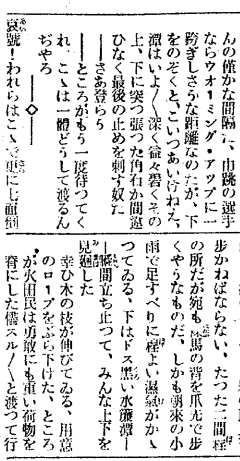 んの僅かな間隔に、巾跳の選手
ならウオーミング・アツプに一
跨ぎしさうな距離なのだが、下
をのぞくと、こいつあいけねえ、
潭はいよ〱深く益々碧くその
上、下に突つ張つた角石が間違
ひなく最後の止めを刺す奴だ
――さあ登らう
――ところがもう一度待つてく
れ、こゝは一體どうして渡るん
ぢやろ
――◇――
哀號！われらはこゝで更に七面倒
歩かねばならない、たつた二間程
の所だが宛も馬の背を爪先で歩
くやうなものだ、しかも朝來の小
雨で足すべりに程よい濕氣がかゝ
つてゐる、下はドス黑い水簾潭―
―間立ち止つて、みんな上下を
見廻した
幸ひ木の枝が伸びてゐる、用意
のロープをぶら下げた、ところ
が火田民は勇敢にも重い荷物を
脊にした儘スル〱と渡つて行